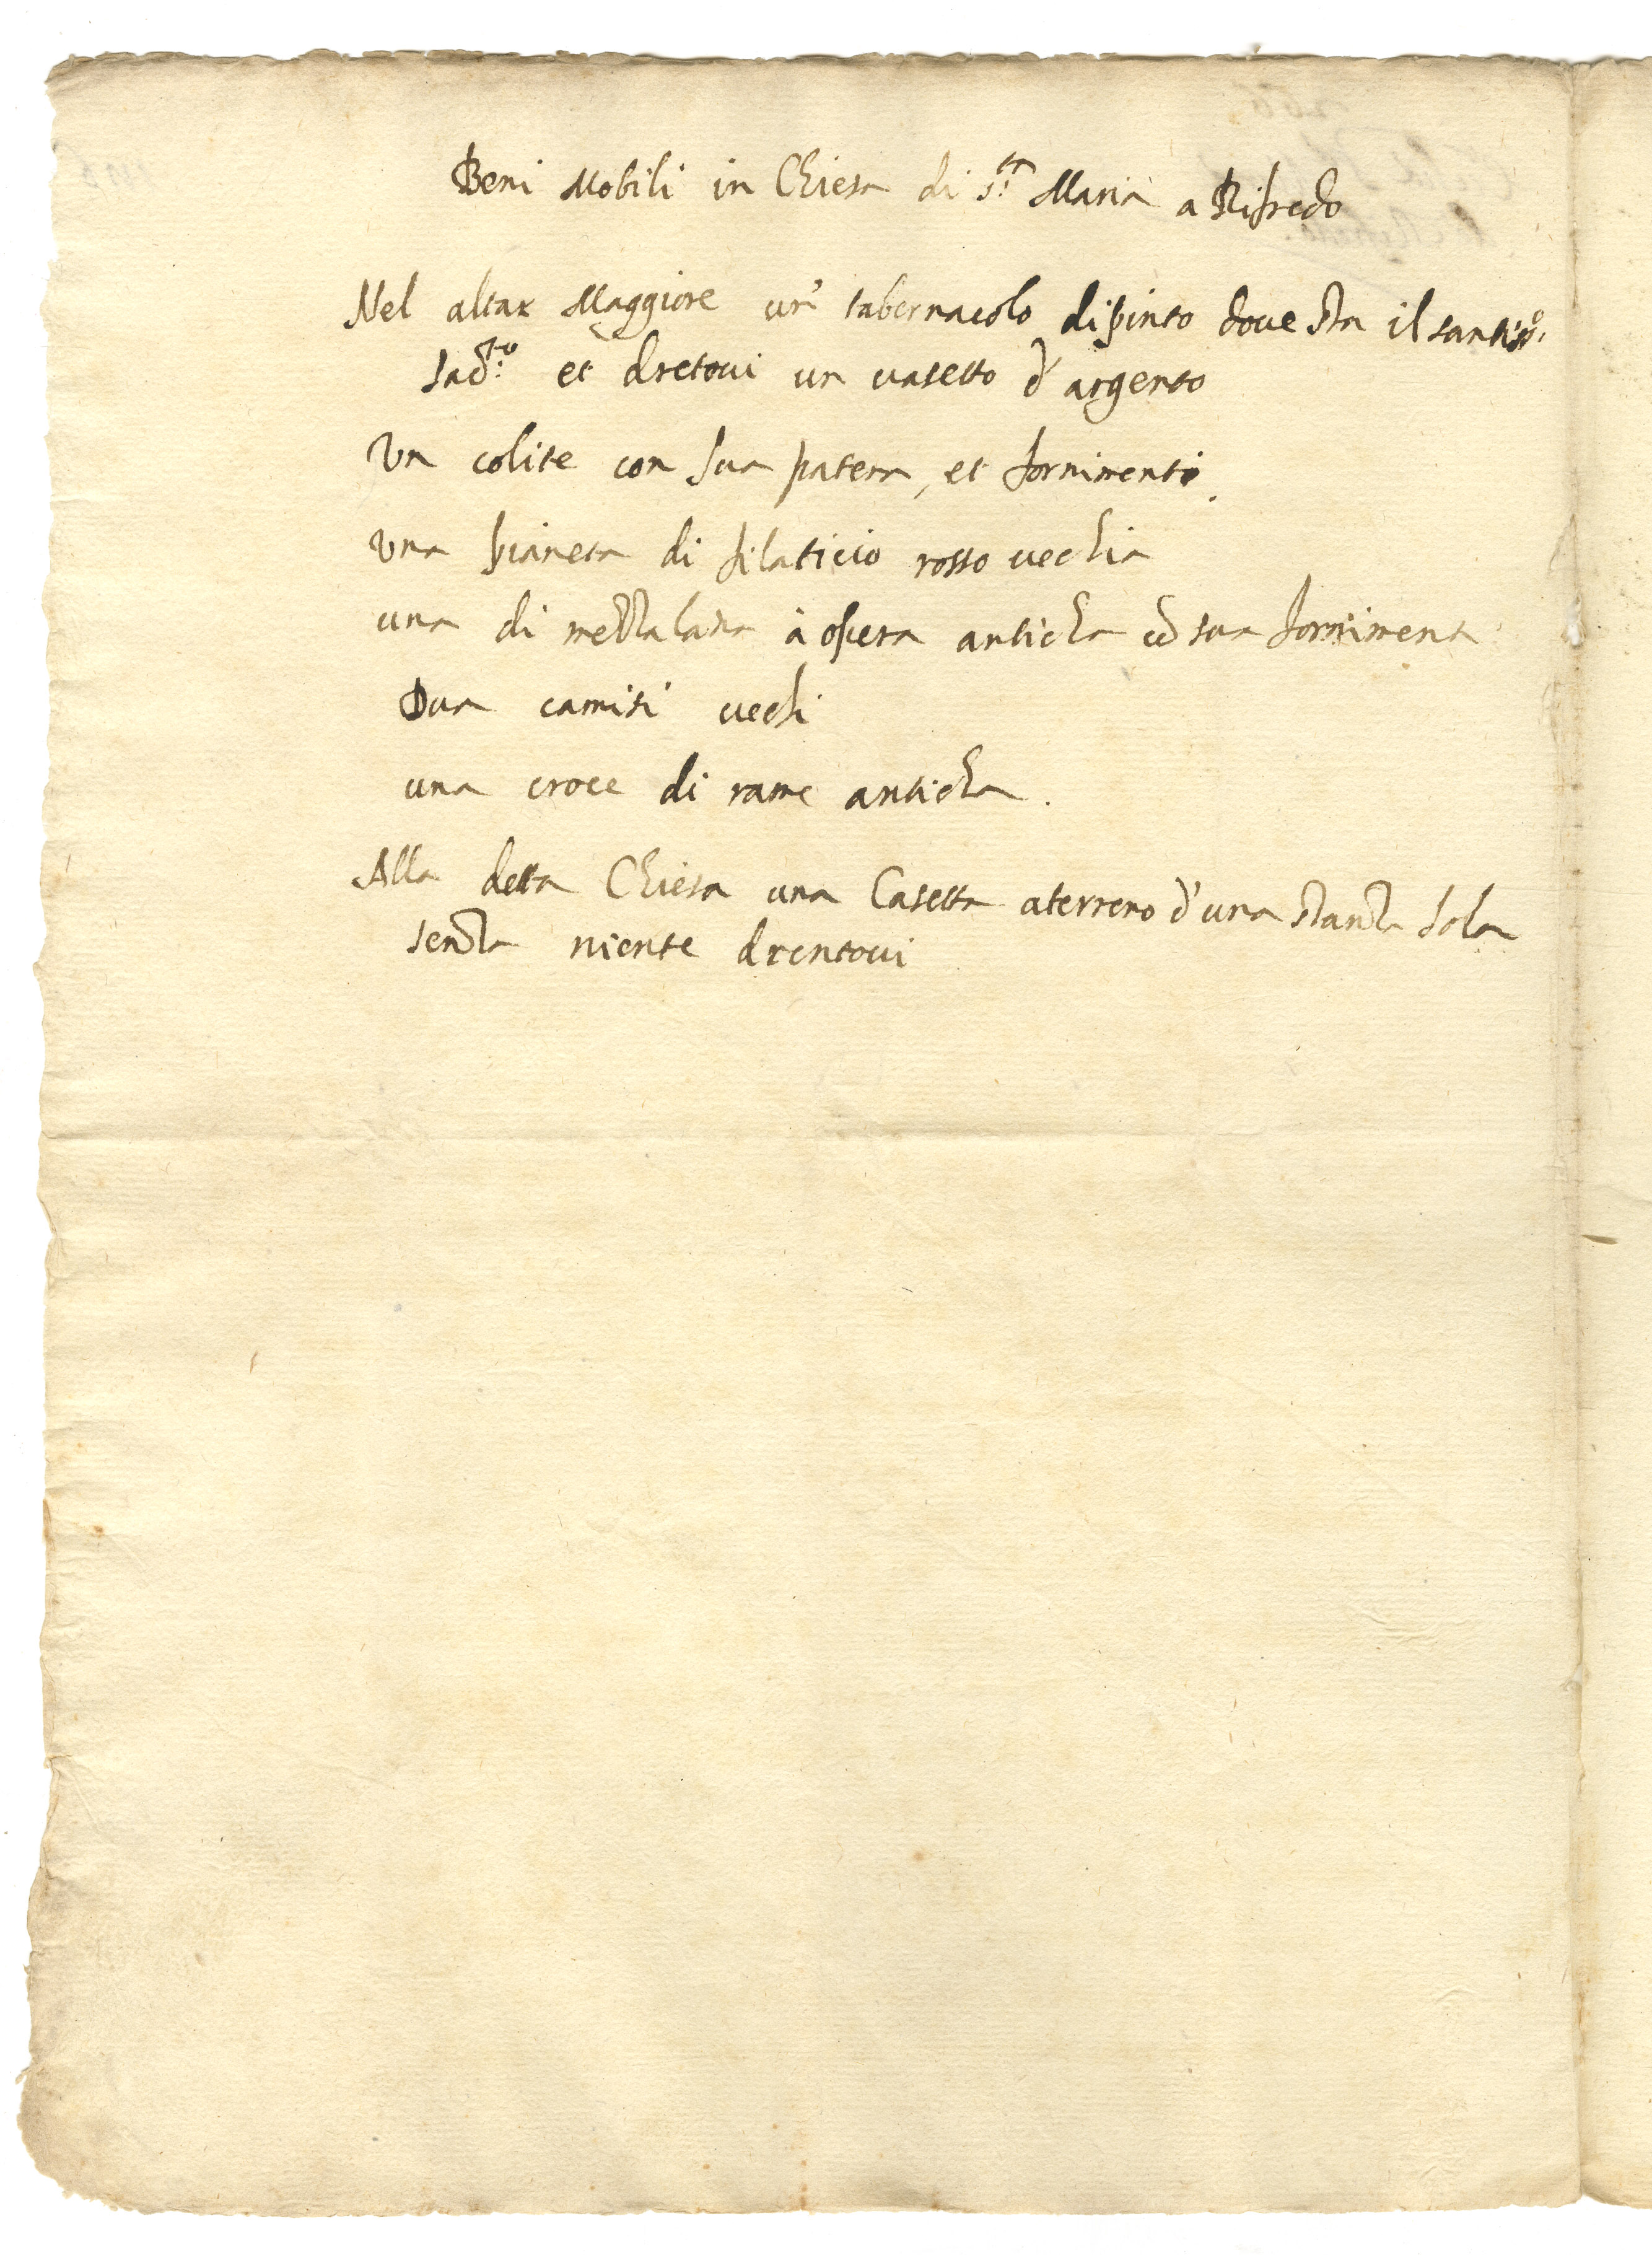 Beni Mobili in Chiesa di S.ta Maria a Rifredo
Nel altar Maggiore un' tabernacolo dipinto dove sta il santiss.o
Sac.to et dretovi un vasetto d'argento
Un colite con sua patena, et fornimenti.
Una pianeta di filaticio rosso vechia
una di mezzalana à opera anticha cō sua fornimenta
Dua camisi vechi
una croce di rame anticha.
Alla detta Chiesa una Casetta aterreno d'una stanza sola
senza niente drentovi